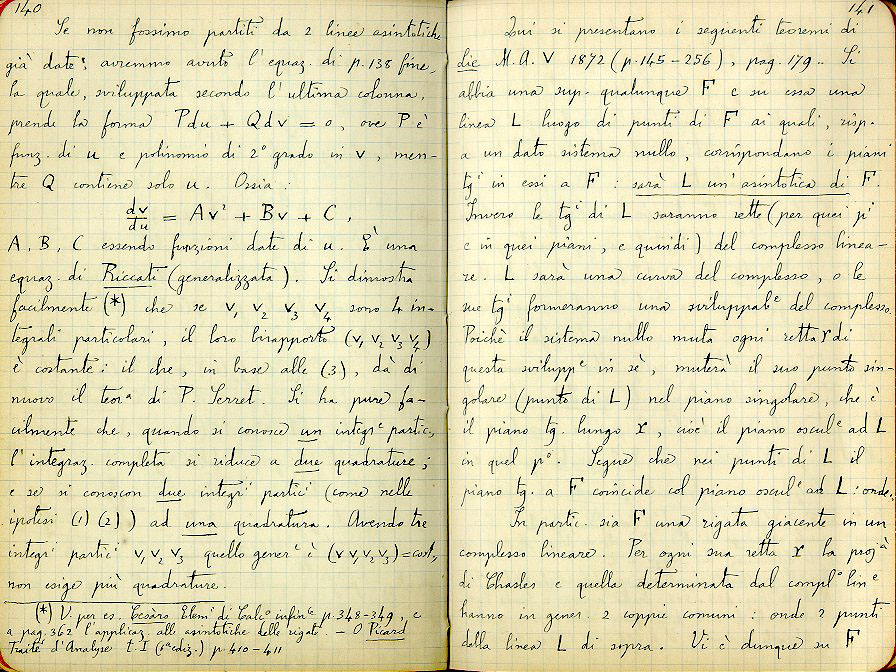 140
Se non fossimo partiti da 2 linee asintotiche
già date: avremmo avuto l'equaz. di p. 138 fine,
la quale, sviluppata secondo l'ultima colonna,
prende la forma Pdu + Qdv = 0, ove P è
funz. di u e polinomio di 2° grado in v, men-
tre Q contiene solo u. Ossia:
dv/du = Av² + Bv + C,
A, B, C essendo funzioni date di u. È una
equaz. di Riccati (generalizzata). Si dimostra
facilmente (*) che se v₁ v₂ v₃ v₄ sono 4 in-
tegrali particolari, il loro birapporto (v₁ v₂ v₃ v₄)
è costante: il che, in base alle (3), dà di
nuovo il teorª di P. Serret. Si ha pure fa-
cilmente che, quando si conosce un integrᵉ partic,
l'integraz. completa si riduce a due quadrature;
e se si conoscon due integrⁱ particⁱ (come nelle
ipotesi (1) (2)) ad una quadratura. Avendo tre
integrⁱ particⁱ v₁ v₂ v₃ quello generᵉ è (v v₁ v₂ v₃) = cost,
non esige più quadrature.
(*) V. per es. Cesàro Elemⁱ di Calcº infinˡᵉ p. 348-349, e
a pag. 362 l'applicaz. alle asintotiche delle rigate. — O Picard
Traité d'Analyse t. I (1ª ediz.) p. 410-411
141
Qui si presentano i seguenti teoremi di
Lie M. A. V 1872 (p. 145-256), pag. 179.. Si
abbia una sup. qualunque F e su essa una
linea L luogo di punti di F ai quali, risp.
a un dato sistema nullo, corrispondano i piani
tgⁱ in essi a F: sarà L un'asintotica di F.
Invero le tgⁱ di L saranno rette (per quei pⁱ
e in quei piani, e quindi) del complesso linea-
re. L sarà una curva del complesso, o le
sue tgⁱ formeranno una sviluppabᵉ del complesso.
Poichè il sistema nullo muta ogni retta r di
questa sviluppᵉ in sè, muterà il suo punto sin-
golare (punto di L) nel piano singolare, che è
il piano tg. lungo r, cioè il piano osculᵉ ad L
in quel pº. Segue che nei punti di L il
piano tg. a F coincide col piano osculᵉ ad L: onde.
In partic. sia F una rigata giacente in un
complesso lineare. Per ogni sua retta r la projᵃ
di Chasles e quella determinata dal complº linᵉ
hanno in gener. 2 coppie comuni: onde 2 punti
della linea L di sopra. Vi è dunque su F